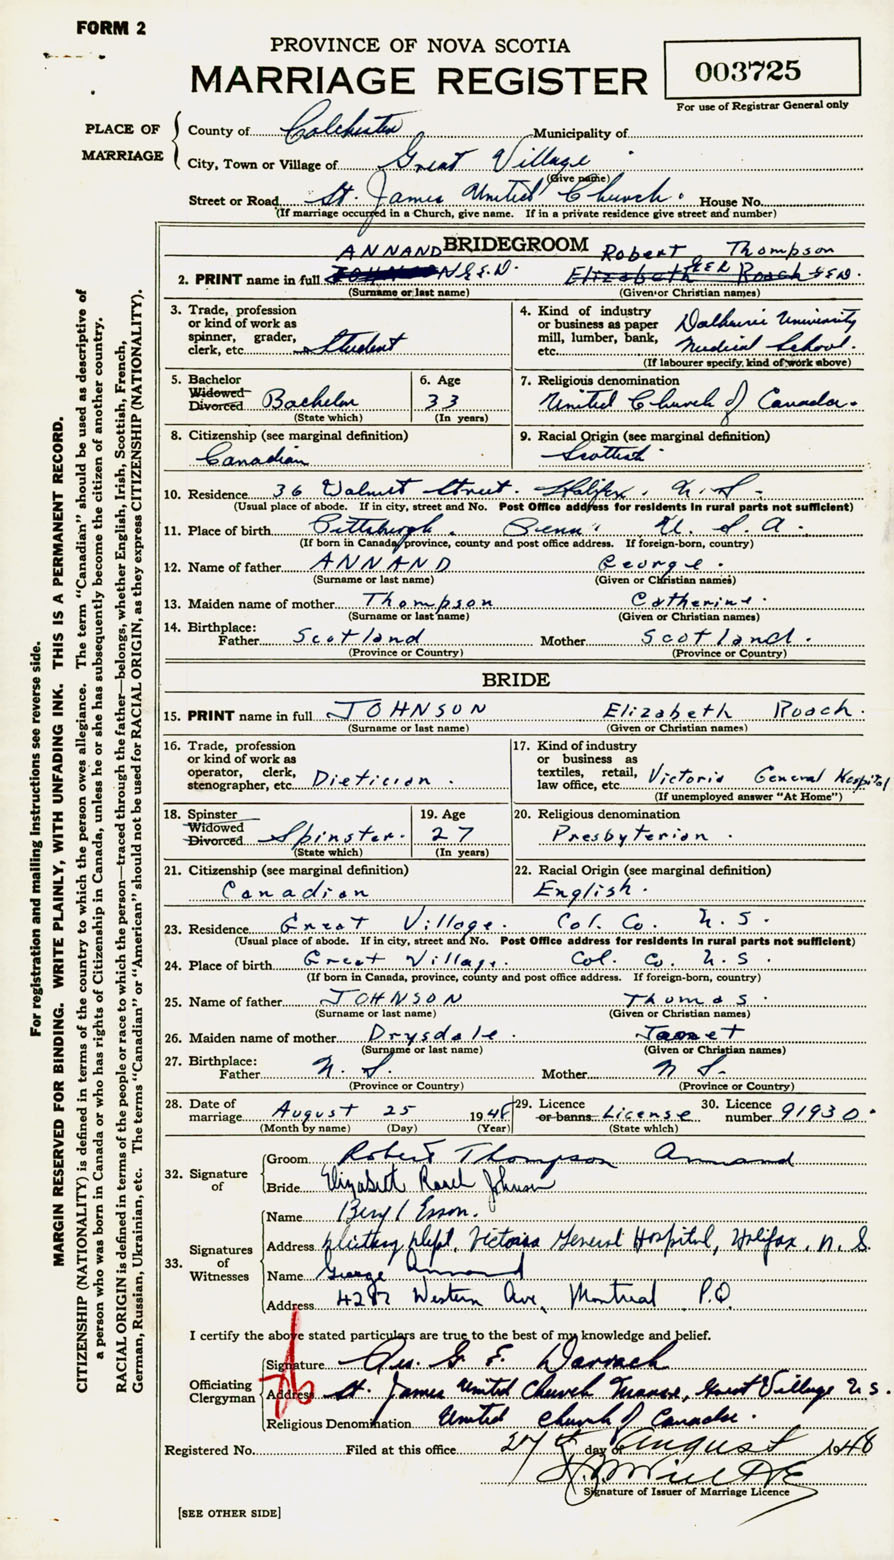 FORM 2
PROVINCE OF NOVA SCOTIA
MARRIAGE REGISTER
003725
For use of Registrar General only
PLACE OF MARRIAGE
County of Colchester Municipality of
City, Town or Village of Great Village
(Give name)
Street or Road St. James United Church. House No.
(If marriage occurred in a Church, give name. If in a private residence give street and number)
BRIDEGROOM
ANNAND Robert Thompson
2. PRINT name in full JOHNSON Elizabeth Roach
(Surname or last name) (Given or Christian names)
3. Trade, profession or kind of work as spinner, grader, clerk, etc. Student
4. Kind of industry or business as paper mill, lumber, bank, etc. Dalhousie University Medical School.
(If labourer specify, kind of work above)
5. Bachelor Widowed Divorced Bachelor
(State which)
6. Age 33
(In years)
7. Religious denomination United Church of Canada.
8. Citizenship (see marginal definition) Canadian
9. Racial Origin (see marginal definition) Scottish
10. Residence 36 Walnut Street. Halifax. N. S.
(Usual place of abode. If in city, street and No. Post Office address for residents in rural parts not sufficient)
11. Place of birth Pittsburgh. Penn. U. S. A.
(If born in Canada, province, county and post office address. If foreign-born, country)
12. Name of father ANNAND George.
(Surname or last name) (Given or Christian names)
13. Maiden name of mother Thompson Catherine.
(Surname or last name) (Given or Christian names)
14. Birthplace: Father Scotland Mother Scotland.
(Province or Country) (Province or Country)
BRIDE
15. PRINT name in full JOHNSON Elizabeth Roach.
(Surname or last name) (Given or Christian names)
16. Trade, profession or kind of work as operator, clerk, stenographer, etc. Dietician.
17. Kind of industry or business as textiles, retail, law office, etc. Victoria General Hospital
(If unemployed answer "At Home")
18. Spinster Widowed Divorced Spinster.
(State which)
19. Age 27
(In years)
20. Religious denomination Presbyterian.
21. Citizenship (see marginal definition) Canadian
22. Racial Origin (see marginal definition) English.
23. Residence Great Village. Col. Co. N. S.
(Usual place of abode. If in city, street and No. Post Office address for residents in rural parts not sufficient)
24. Place of birth Great Village. Col. Co. N. S
(If born in Canada, province, county and post office address. If foreign-born, country)
25. Name of father JOHNSON Thomas.
(Surname or last name) (Given or Christian names)
26. Maiden name of mother Drysdale. Janet
(Surname or last name) (Given or Christian names)
27. Birthplace: Father N. S. Mother N S.
(Province or Country) (Province or Country)
28. Date of marriage August 25 1948
(Month by name) (Day) (Year)
29. Licence or banns License
(State which)
30. Licence number 91930.
32. Signature of
Groom Robert Thompson Annand
Bride Elizabeth Roach Johnson
33. Signatures of Witnesses
Name Beryl Esson.
Address Dietary Dept, Victoria General Hospital, Halifax, N. S.
Name George Annand
Address 4287 Western Ave, Montreal P.Q
I certify the above stated particulars are true to the best of my knowledge and belief.
Officiating Clergyman
Signature Geo. G. E. Darrach
Address St. James United Church Manse, Great Village N. S.
Religious Denomination United Church of Canada.
Registered No. Filed at this office 27 day August 1948
Signature of Issuer of Marriage Licence
[SEE OTHER SIDE]
For registration and mailing instructions see reverse side.
MARGIN RESERVED FOR BINDING. WRITE PLAINLY, WITH UNFADING INK. THIS IS A PERMANENT RECORD.
CITIZENSHIP (NATIONALITY) is defined in terms of the country to which the person owes allegiance. The term "Canadian" should be used as descriptive of
a person who was born in Canada or who has rights of Citizenship in Canada, unless he or she has subsequently become the citizen of another country.
RACIAL ORIGIN is defined in terms of the people or race to which the person—traced through the father—belongs, whether English, Irish, Scottish, French,
German, Russian, Ukrainian, etc. The terms "Canadian" or "American" should not be used for RACIAL ORIGIN, as they express CITIZENSHIP (NATIONALITY).